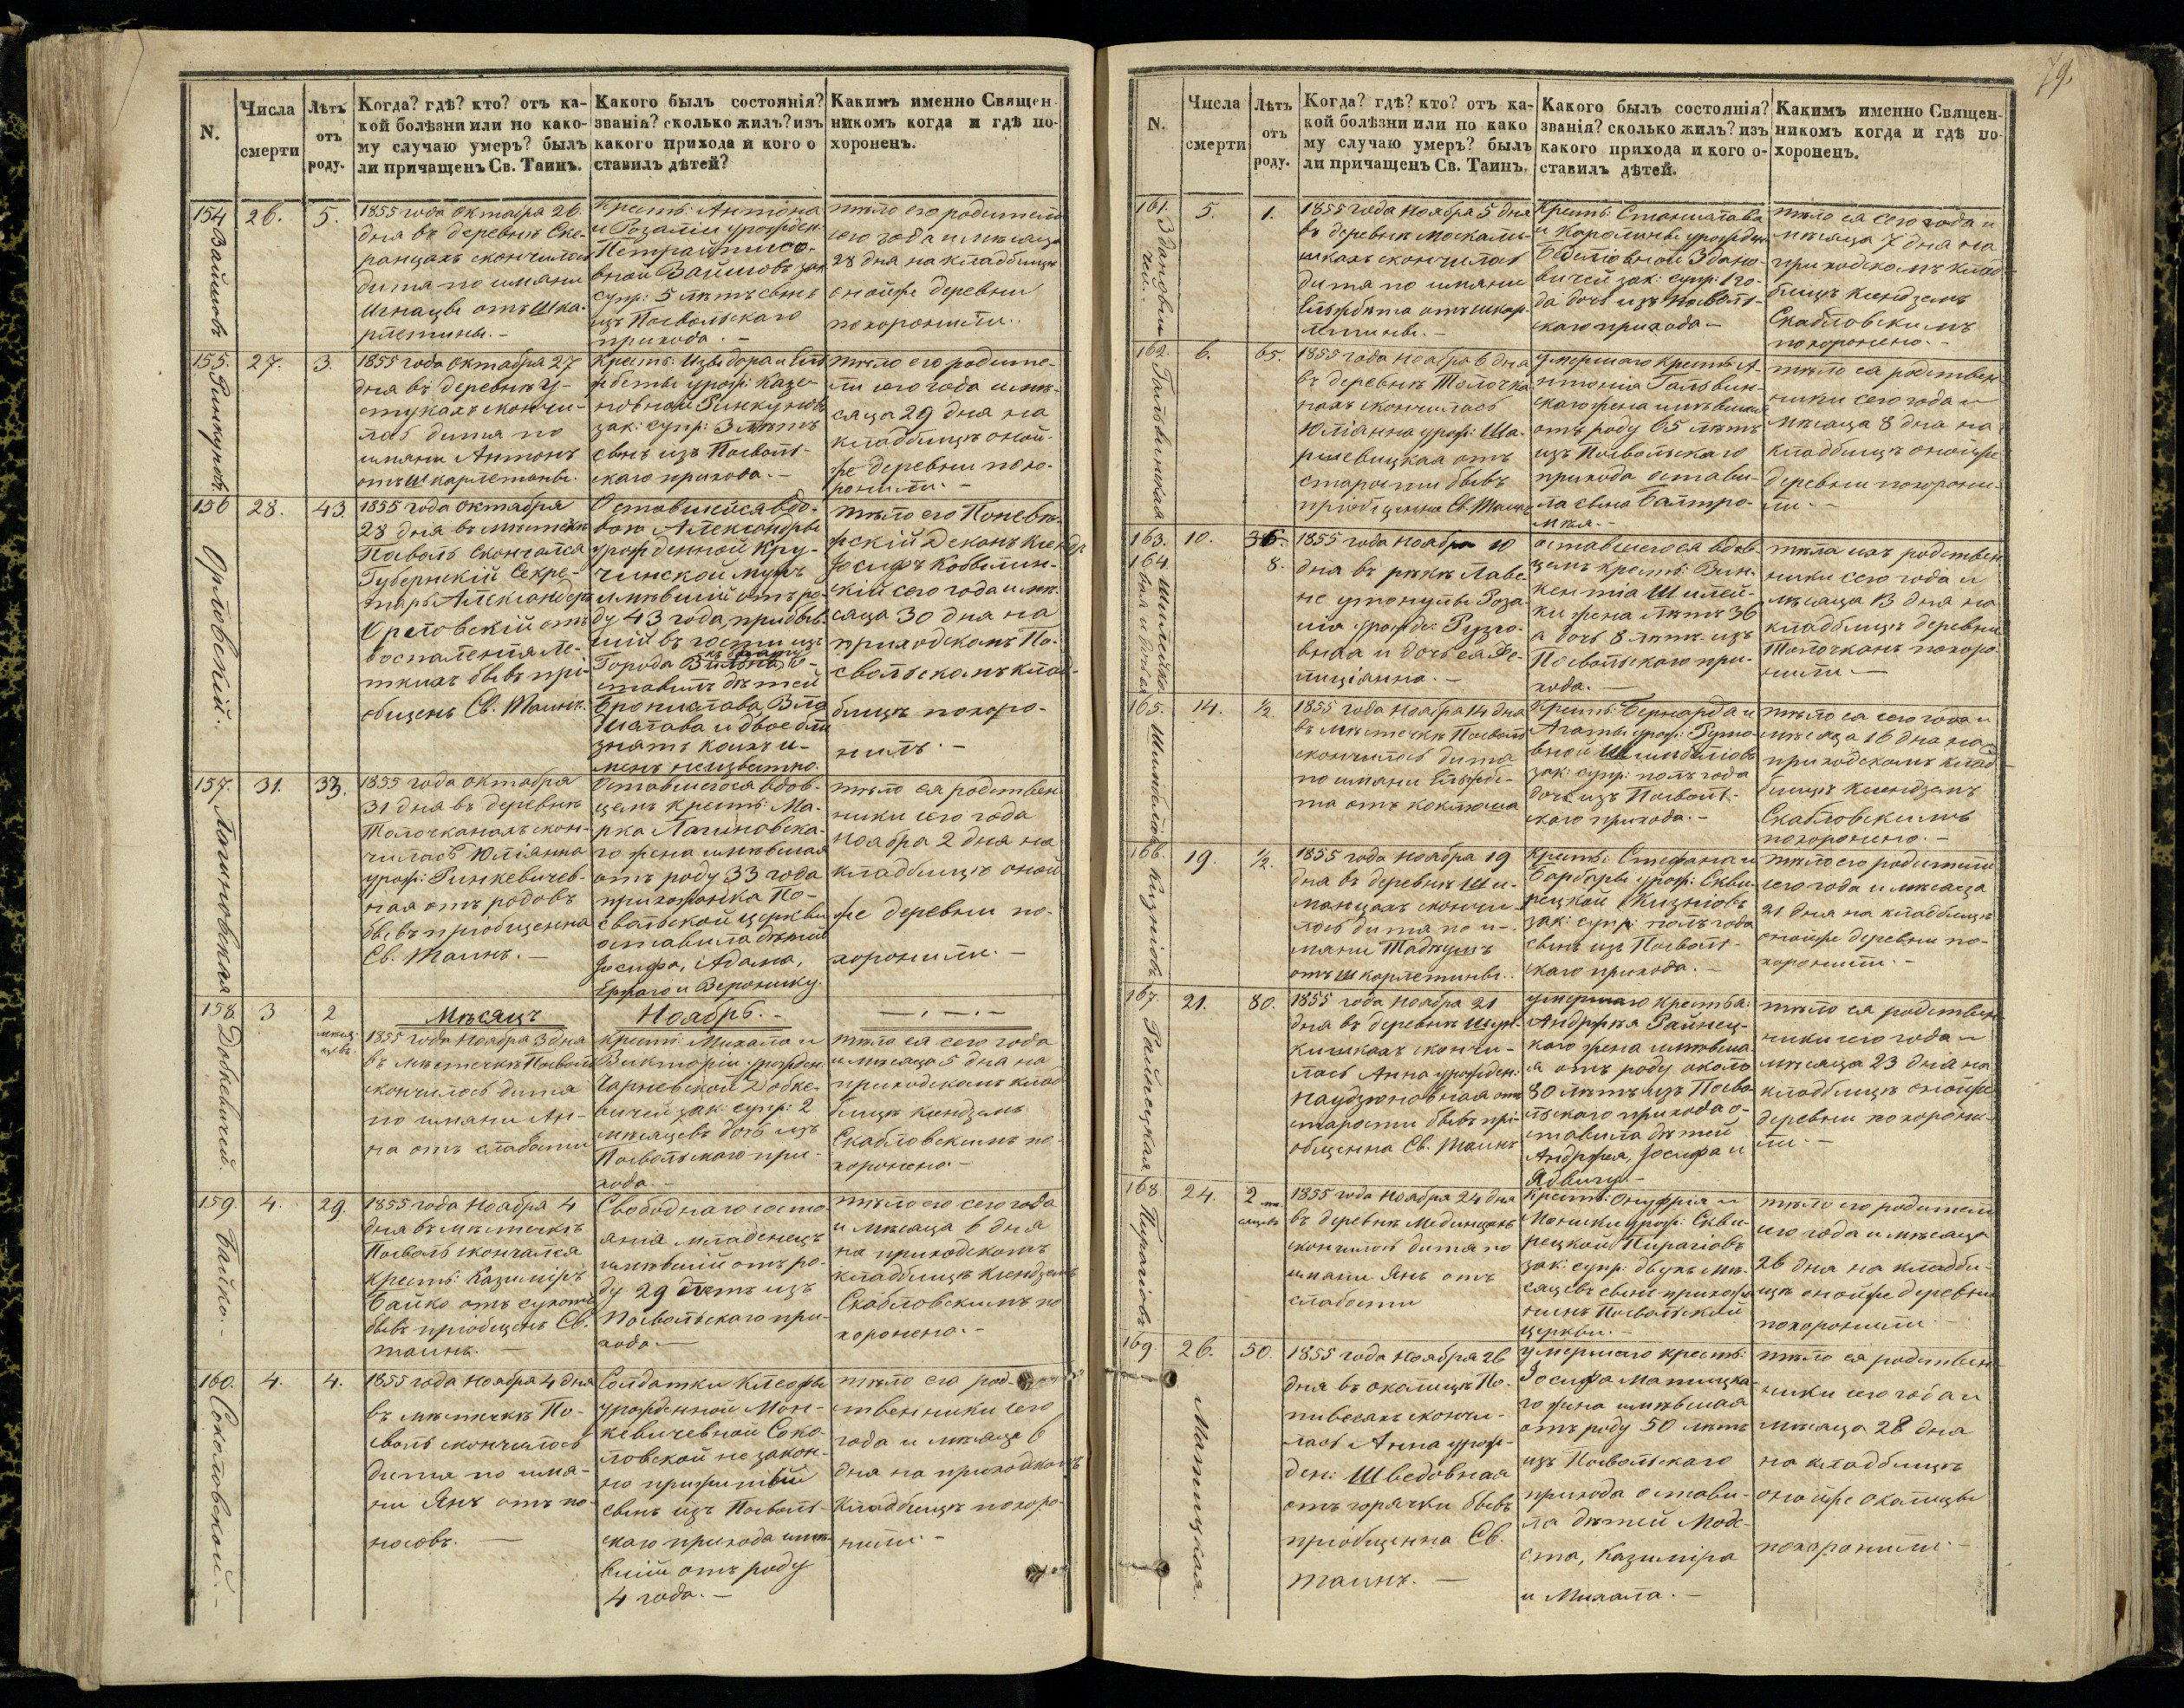 N.
Числа
смерти
Лѣтъ
отъ
роду.
Когда? гдѣ? кто? отъ ка-
кой болѣзни или по како-
му случаю умеръ? былъ
ли причащенъ Св. Таинъ.
Какого былъ состоянія?
званія? сколько жилъ? изъ
какого прихода и кого о
ставилъ дѣтей?
Какимъ именно Священ-
никомъ когда и гдѣ по-
хороненъ.
154
26.
5.
1855 года Октября 26
дня въ деревнѣ
скончилось
дитя по имяни
Игнацы отъ Шка-
рлетины.-
Крестъ: Антона
и Розаліи урожден:
зак:
супр: 5 лѣтъ сынъ
изъ Посвольскаго
прихода.-
тѣло его родители
сего года и мѣсяца
28 дня на кладбищѣ
онойже деревни
похоронили.
155.
Ринкуновъ
27.
3.
1855 года Октября 27
дня въ деревнѣ У-
стукахъ скончи-
лось дитя по
имяни Антонъ
отъ шкарлетины.
Крестъ: Изыдора и Ель-
жбеты урож:
Ринкуновъ
зак: супр: 3 лѣтъ
сынъ изъ Посволь-
скаго прихода.-
тѣло его родите-
ли сего года и мѣ-
сяца 29 дня на
кладбищѣ оной-
же деревни похо-
ронили.-
156
Орловскій.
28.
43.
1855 года Октября
28 дня въ мѣстечкѣ
Посволь скончался
Губернскій Секре-
тарь Александеръ
Орловскій отъ
воспаленія ле-
гкихъ бывъ прі-
общенъ Св. Таинъ.
Оставшейся вдо-
вою Александры
урожденной Кру-
чинской мужъ
имѣвшій отъ ро-
ду 43 года, прибыв-
шій въ гости изъ
Города Вильна о-
ставилъ дѣтей
Бронислава Вла-
дислава и двое бли
знятъ коихъ и-
менъ неизвѣстно.
тѣло его Поневѣ-
жскій Деканъ Ксендзъ
Іосифъ
скій сего года и мѣ-
сяца 30 дня на
приходскомъ По-
свольскомъ клад-
бищѣ похоро-
нилъ.-
157.
Логиновская
31.
33.
1855 года Октября
31 дня въ деревнѣ
Толочканахъ скон-
чилась Юліянна
урож: Ринкевичев-
ная отъ родовъ
бывъ пріобщенна
Св. Таинъ.-
Оставшегося вдов-
цемъ крестъ: Ма-
рка Логиновска-
го жена имѣвшая
отъ роду 33 года
прихожанка По-
свольской церкви
оставила дѣтей
Іосифа, Адама,
Ежаго и Веронику.
тѣло ея родствен
ники сего года
Ноября 2 дня на
кладбищѣ оной
же деревни по-
хоронили.-
Мѣсяцъ
Ноябрь.-
158.
Довкевичей.
3
2
мѣся-
цевъ.
1855 года Ноября 3 дня
въ мѣстечкѣ Посволь
скончилось дитя
по имяни Ан-
на отъ слабости
Крестъ: Михала и
Викторіи урожден:
Чарневской Довке-
вичей зак: супр: 2
мѣсяцевъ дочь изъ
Посвольскаго при-
хода.-
тѣло ея сего года
и мѣсяца 5 дня на
приходскомъ клад
бищѣ ксендземъ
Скабловскимъ по-
хоронено.-
159.
Байко.-
4.
29.
1855 года Ноября 4
дня въ мѣстечкѣ
Посволь скончался
крестъ: Казиміръ
Байко отъ сухотъ
бывъ пріобщенъ Св.
таинъ.-
Свободнаго состо
янія младенецъ
имѣвшій отъ ро-
ду 29 лѣтъ изъ
Посвольскаго при-
хода.-
тѣло его сего года
и мѣсяца 6 дня
на приходскомъ
кладбищѣ Ксендземъ
Скабловскимъ по
хоронено.-
160.
Соколовской.-
4.
4.
1855 года Ноября 4 дня
въ мѣстечкѣ По-
своль скончилось
дитя по имя-
ни Янъ отъ по-
носовъ.-
Солдатки Клеофы
урожденной Мон-
кевичевной Соко-
ловской не закон-
но прижитый
сынъ изъ Посволь-
скаго прихода имѣ-
вшій отъ роду
4 года.-
тѣло его род-
ственники сего
года и мѣсяца 6
дня на приходскомъ
кладбищѣ похоро-
нили.-
79.
N.
Числа
смерти
Лѣтъ
отъ
роду.
Когда? гдѣ? кто? отъ ка-
кой болѣзни или по како
му случаю умеръ? былъ
ли причащенъ Св. Таинъ.
Какого былъ состоянія?
званія? сколько жилъ? изъ
какого прихода и кого о-
ставилъ дѣтей.
Какимъ именно Священ-
никомъ когда и гдѣ по-
хороненъ.
161.
Здановичей.
5.
1.
1855 года Ноября 5 дня
въ деревнѣ Москали-
шкахъ скончилось
дитя по имяни
Ельжбета отъ шкар-
летины.-
Крестъ: Станислава
и Каролины урожден
Здано-
вичей зак: супр: 1 го-
да дочь изъ Посволь-
скаго прихода.-
тѣло ея сего года и
мѣсяца 7 дня на
приходскомъ клад-
бищѣ ксендземъ
Скабловскимъ
похоронено.-
162.
Гальвинская
6.
65.
1855 года Ноября 6 дня
въ деревнѣ Толочка
нахъ скончилась
Юліанна урож: Ша-
ршевицкая отъ
старости бывъ
пріобщенна Св. Таинъ
умершаго Крестъ: А-
нтонія Гальвин-
скаго жена имѣвшая
отъ роду 65 лѣтъ
изъ Посвольскаго
прихода остави-
ла сына Балтро-
мѣя.-
тѣло ея родствен
ники сего года и
мѣсяца 8 дня на
кладбищѣ онойже
деревни похорони-
ли.-
163.
164.
10.
36.
8.
1855 года Ноября 10
дня въ рѣкѣ Лаве-
не утонулы Роза-
лія урожд:
вная и дочь ея Фе-
лиціанна.-
оставшегося вдов-
цемъ крестъ: Вин-
кентія Шилей-
ки жена лѣтъ 36
а дочь 8 лѣтъ изъ
Посвольскаго при-
хода.-
тѣла ихъ родствен
ники сего года и
мѣсяца 13 дня на
кладбищѣ деревни
Толочканъ похоро-
нили.-
165.
14.
½.
1855 года Ноября 14 дня
въ мѣстечкѣ Посволь
скончилось дитя
по имяни Ельжбе-
та отъ коклюша
Крестъ: Бернарда и
Агаты урож:
вной
зак: супр: полъ года
дочь изъ Посволь-
скаго прихода.-
тѣло ея сего года и
мѣсяца 16 дня на
приходскомъ клад-
бищѣ Ксендземъ
Скабловскимъ
похоронено.-
166.
Кизніовъ
19.
½.
1855 года Ноября 19
дня въ деревнѣ Ши-
манцахъ скончи-
лось дитя по и-
мяни Тадеушъ
отъ шкарлетины.
Крестъ: Стефана и
Барбары урож: Скви-
рецкой Кизніовъ
зак: супр: полъ года
сынъ изъ Посволь-
скаго прихода.-
тѣло его родители
сего года и мѣсяца
21 дня на кладбищѣ
онойже деревни по-
хоронили.-
167.
Райнецкая
21.
80.
1855 года Ноября 21
дня въ деревнѣ
кишкахъ скончи-
лась Анна урожден:
Наудзюновная отъ
старости бывъ прі-
общенна Св. Таинъ
умершаго крестья:
Андржея Райнец-
каго жена имѣвша-
я отъ роду около
80 лѣтъ изъ Посво
льскаго прихода о-
ставила дѣтей
Андржея, Іосифа и
Ядвигу.-
тѣло ея родствен
ники сего года и
мѣсяца 23 дня на
кладбищѣ онойже
деревни похорони-
ли.-
168.
Пирагіовъ
24.
2 мѣ-
сяцевъ
1855 года Ноября 24 дня
въ деревнѣ Мединцахъ
скончилось дитя по
имяни Янъ отъ
слабости
Крестъ: Онуфрія и
Моники урож: Скви-
рецкой Пирагіовъ
зак: супр: двухъ мѣ-
сяцевъ сынъ прихожа-
нинъ Посвольской
церкви.-
тѣло его родители
сего года и мѣсяца
26 дня на кладби-
щѣ онойже деревни
похоронили.-
169.
Матицкая.
26.
50.
1855 года Ноября 26
дня въ околицѣ По-
пивесахъ скончи-
лась Анна урож-
ден: Шведовная
отъ горячки бывъ
пріобщенна Св.
таинъ.-
умершаго крестъ:
Іосифа Матицка
го жена имѣвшая
отъ роду 50 лѣтъ
изъ Посвольскаго
прихода остави-
ла дѣтей Моде-
ста, Казиміра
и Михала.-
тѣло ея родствен-
ники сего года и
мѣсяца 28 дня
на кладбищѣ
онойже околицы
похоронили.-